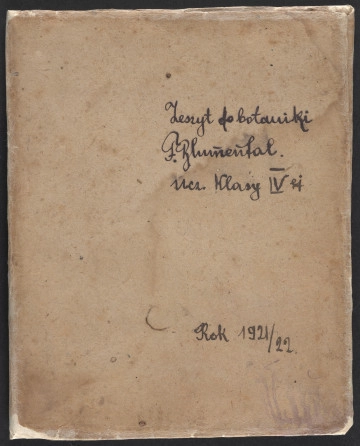 Zeszyt do botaniki
F. Blumental.
ucz. Klasy IV ej
Rok 1921/22.